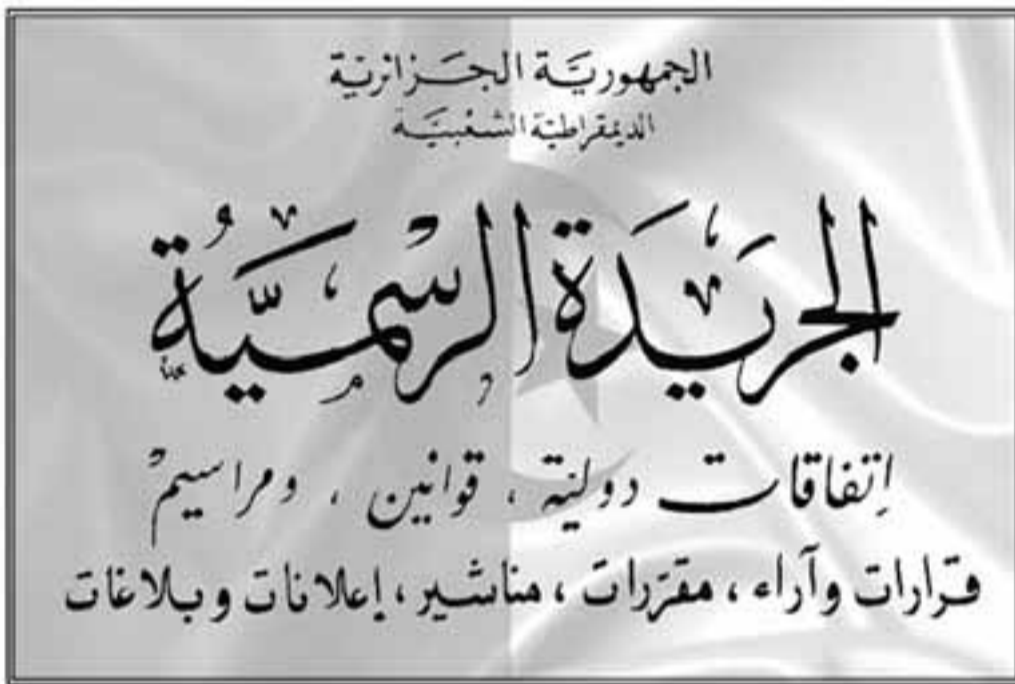 الجمهوريَّة الجَزائريَّة
الديمقراطيّة الشعبيَّة
الجريدَة الرسْميَّةُ
اِتفاقات دولية ، قوانين ، ومراسيمْ
قرارات وآراء ، مقرّرات ، مناشير ، إعلانات وبلاغات